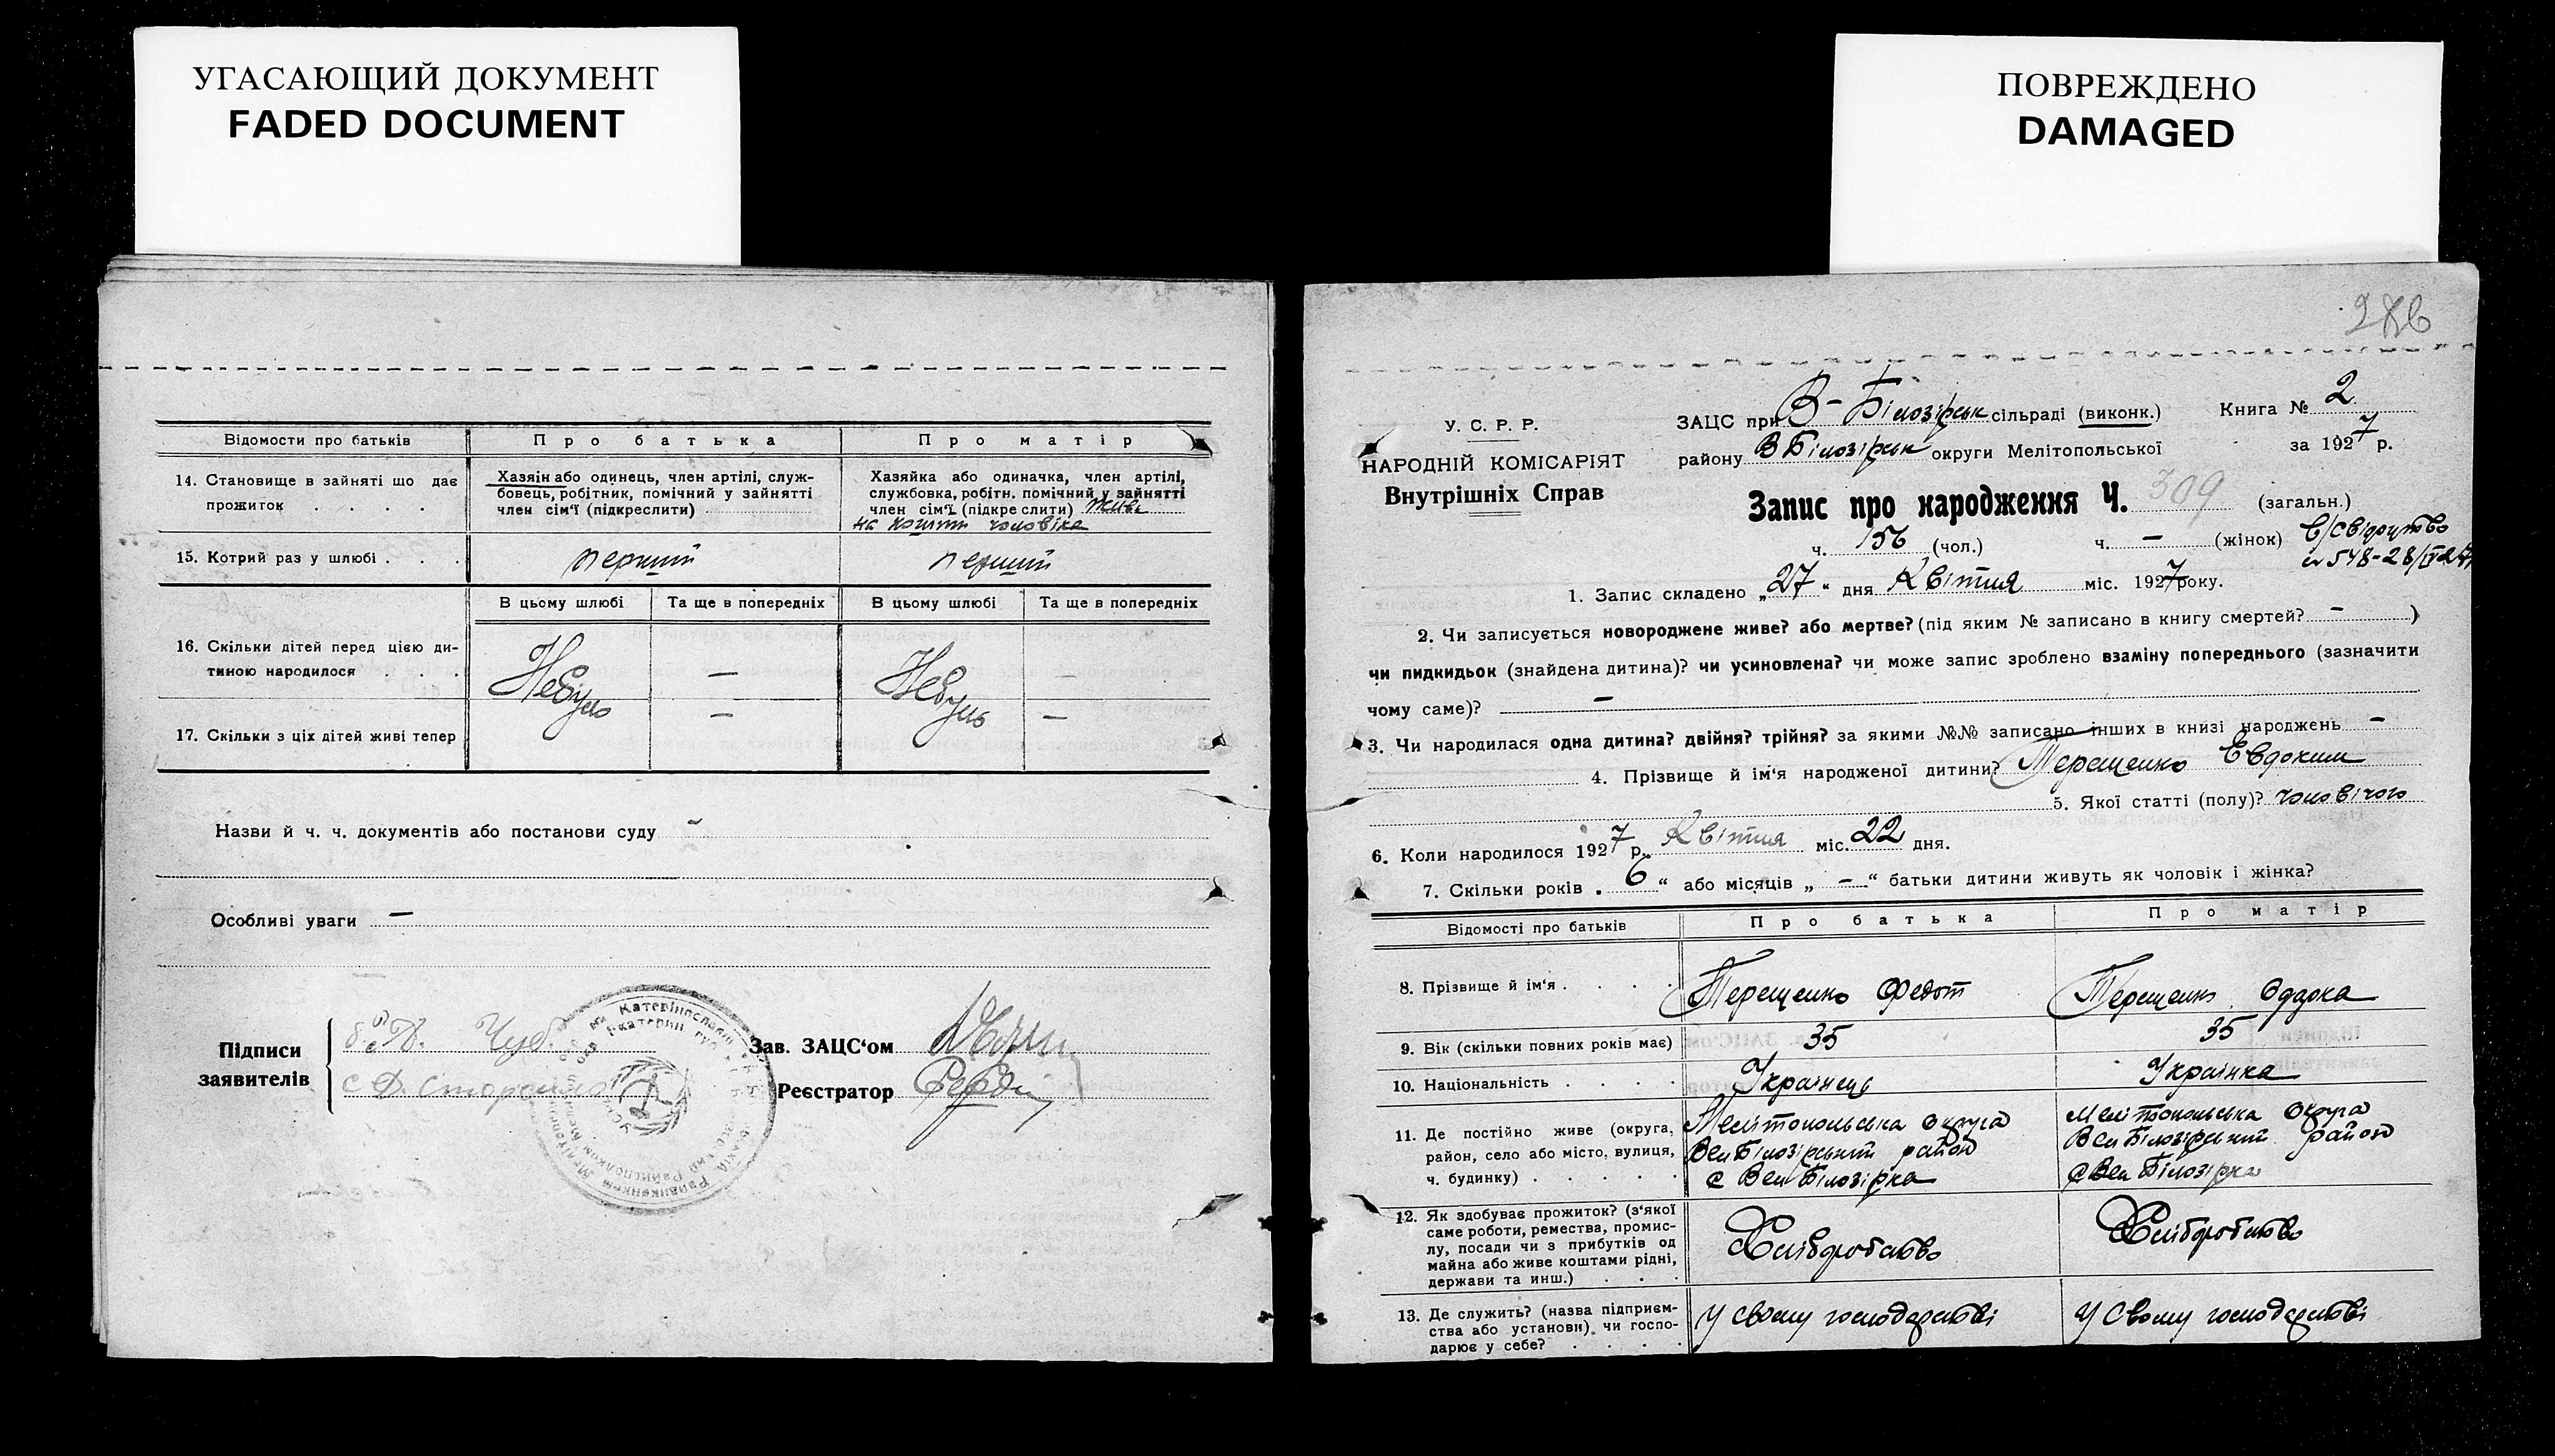 УГАСАЮЩИЙ ДОКУМЕНТ
FADED DOCUMENT
ПОВРЕЖДЕНО
DAMAGED
Відомости про батьків
Про батька
Про матір
14. Становище в зайняті що дає прожиток . . . .
Хазяін або одинець, член артілі, служ-
бовець, робітник, помічний у зайнятті
член сім'ї (підкреслити)
Хазяйка або одиначка, член артілі,
службовка, робітн. помічний у зайнятті
член сім'ї (підкреслити) живе
на кошти чоловіка
15. Котрий раз у шлюбі . . .
перший
перший
В цьому шлюбі
Та ще в попередніх
В цьому шлюбі
Та ще в попередніх
16. Скільки дітей перед цією ди-
тиною народилося . . .
Небуло
—
Небуло
—
17. Скільки з ціх дітей живі тепер
—
—
Назви й ч. ч. документів або постанови суду -
Особливі уваги —
Підписи
заявителів
Зав. ЗАЦС'ом
Реєстратор
286
У. С. Р. Р.
НАРОДНІЙ КОМІСАРІЯТ
Внутрішніх Справ
ЗАЦС при В-Білозірськ сільраді (виконк.)
Книга № 2
району ВБілозірськ округи Мелітопольської
за 1927 р.
Запис про народження Ч. 309 (загальн.)
ч. 156 (чол.)
ч. — (жінок)
В/свідоцтво
№ 548-28/IV 27
1. Запис складено „27" дня Квітня міс. 1927 року.
2. Чи записується новороджене живе? або мертве? (під яким № записано в книгу смертей? — )
чи пидкидьок (знайдена дитина)? чи усиновлена? чи може запис зроблено взаміну попереднього (зазначити
чому саме)? —
3. Чи народилася одна дитина? двійня? трійня? за якими №№ записано інших в книзі народжень —
4. Прізвище й ім'я народженої дитини? Терещенко Євдоким
5. Якої статті (полу)? чоловічого
6. Коли народилося 1927 р. Квітня міс. 22 дня.
7. Скільки років „6" або місяців „ — " батьки дитини живуть як чоловік і жінка?
Відомості про батьків
Про батька
Про матір
8. Прізвище й ім'я . . . .
Терещенко Федот
Терещенко Одарка
9. Вік (скільки повних років має)
35
35
10. Національність . . . .
Українець
Українка
11. Де постійно живе (округа,
район, село або місто, вулиця,
ч. будинку) . . . . .
Мелітопольська округа
Вел Білозірський район
с Вел Білозірка
Мелітопольська округа
Вел Білозірський район
с Вел Білозірка
12. Як здобуває прожиток? (з'якої
саме роботи, ремества, промис-
лу, посади чи з прибутків од
майна або живе коштами рідні,
держави та инш.) . . .
Хліборобство
Хліборобство
13. Де служить? (назва підприєм-
ства або установи), чи госпо-
дарює у себе? . . . .
У своєму господарстві
У своєму господарстві